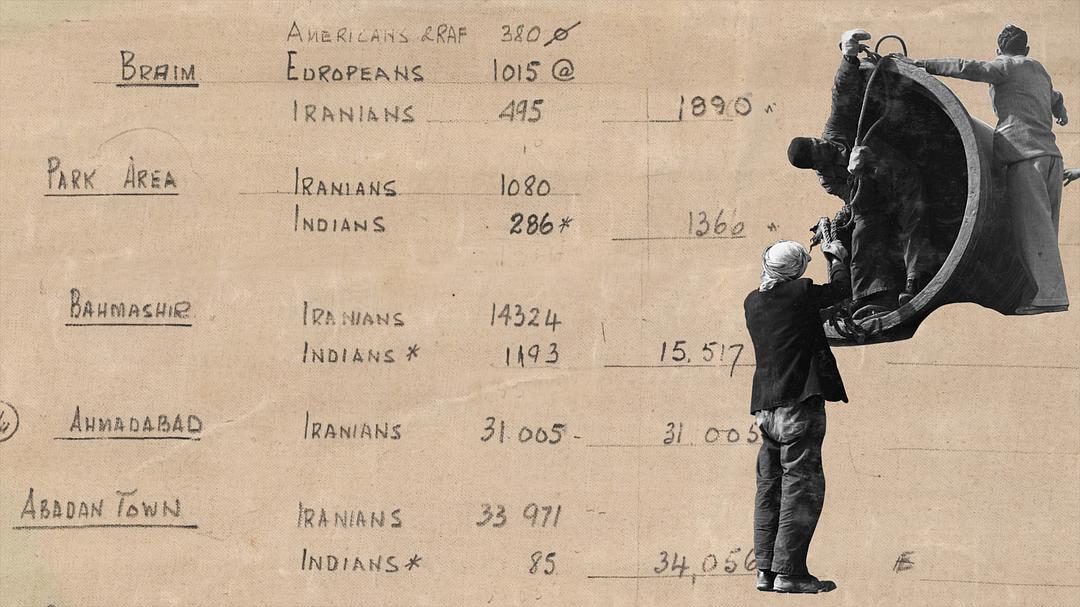 AMERICANS & RAF 380 ø
BRAIM EUROPEANS 1015 @
IRANIANS 495 1890 "
PARK AREA IRANIANS 1080
INDIANS 286* 1366 "
BAHMASHIR IRANIANS 14324
INDIANS * 1193 15.517
AHMADABAD IRANIANS 31.005- 31 005
ABADAN TOWN IRANIANS 33 971 --
INDIANS * 85 34,056